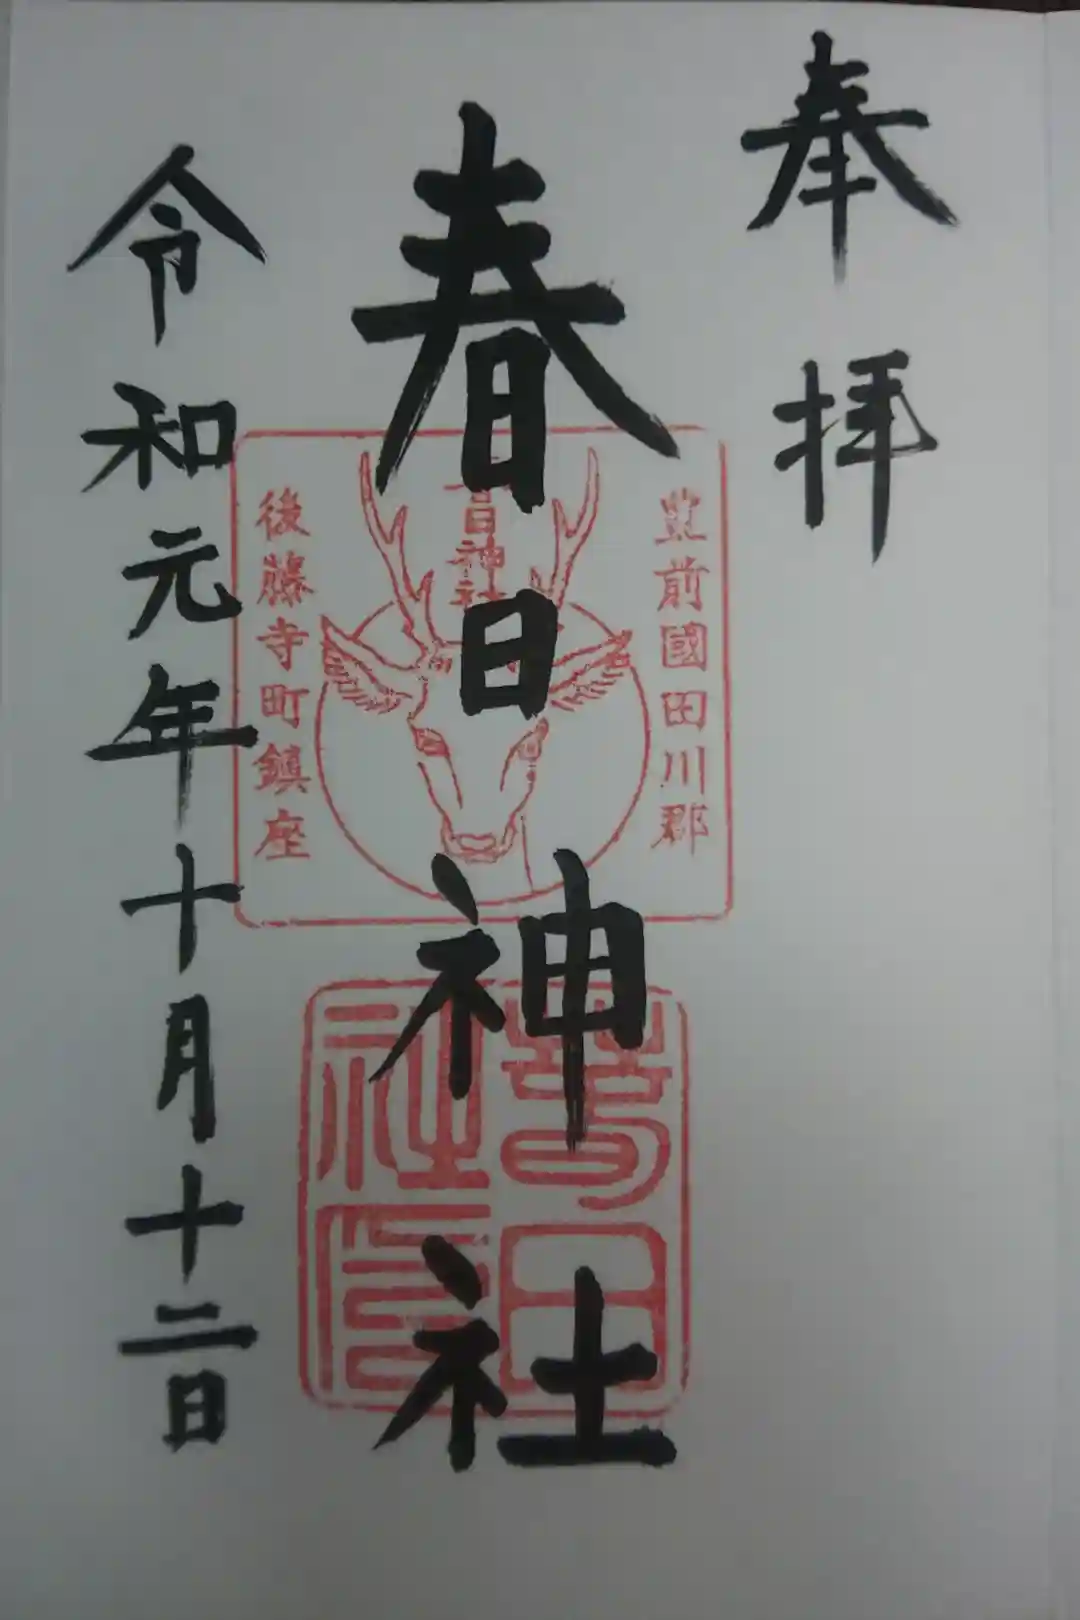 奉拝
春日神社
令和元年十月十二日
豊前國田川郡
日神社
後藤寺町鎮座
春日
社印